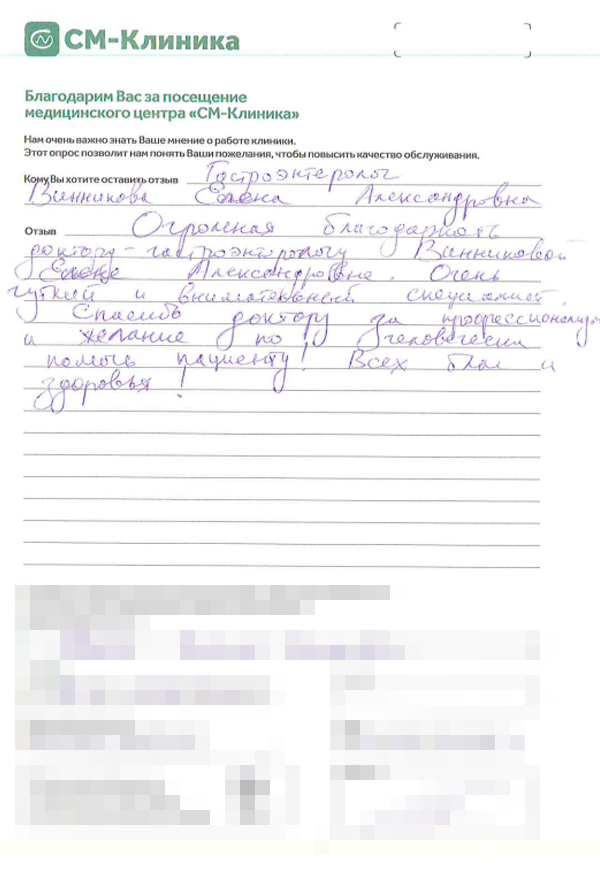 СМ-Клиника
Благодарим Вас за посещение
медицинского центра «СМ-Клиника»
Нам очень важно знать Ваше мнение о работе клиники.
Этот опрос позволит нам понять Ваши пожелания, чтобы повысить качество обслуживания.
Кому Вы хотите оставить отзыв Гастроэнтеролог
Винникова Елена Александровна
Отзыв Огромная благодарность
доктору-гастроэнтерологу Винниковой
Елене Александровне. Очень
чуткий и внимательный специалист.
Спасибо доктору за профессионализм
и желание по человечески
помочь пациенту! Всех благ и
здоровья!